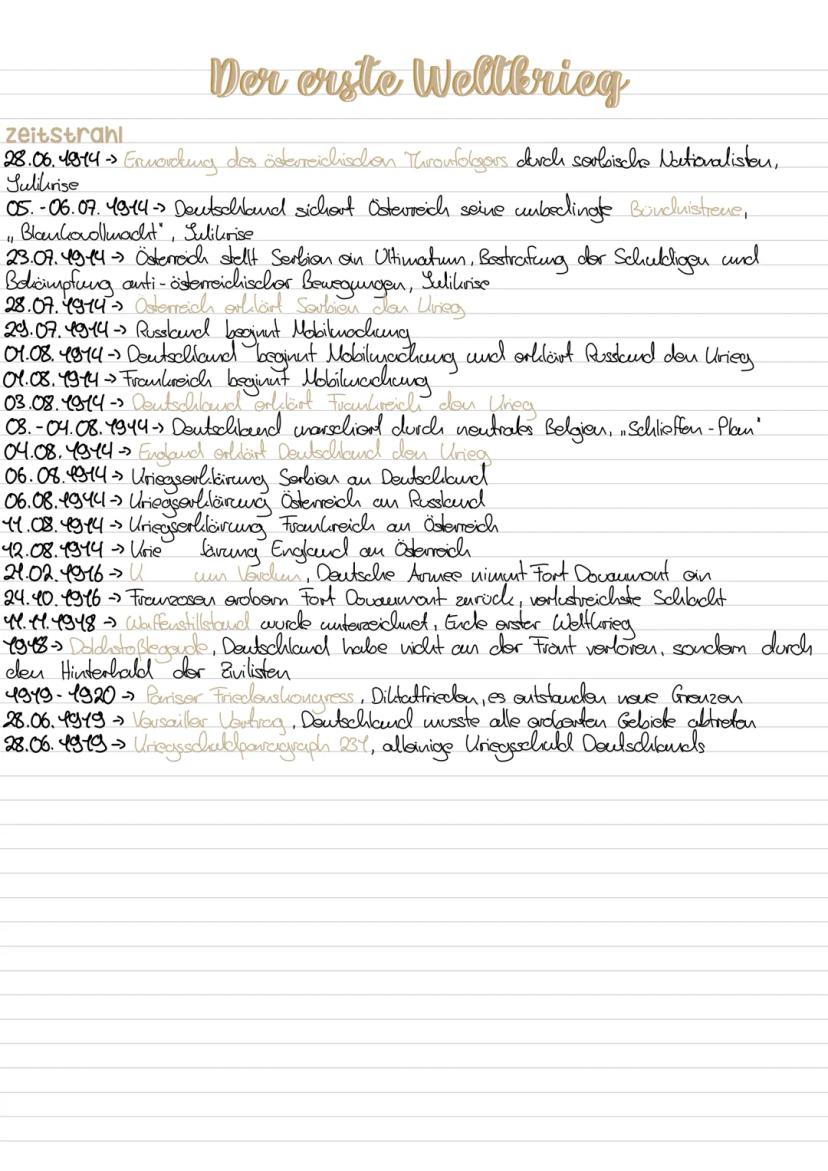 Der erste Weltkrieg
Zeitstrahl
28.06.1914 -> Ermordung des österreichischen Thronfolgers durch serbische Nationalisten,
Julikrise
05.-06.07.1914 -> Deutschland sichert Österreich seine unbedingte Bündnistreue,
„Blankovollmacht", Julikrise
23.07.1914 -> Österreich stellt Serbien ein Ultimatum, Bestrafung der Schuldigen und
Bekämpfung anti-österreichischer Bewegungen, Julikrise
28.07.1914 -> Österreich erklärt Serbien den Krieg
29.07.1914 -> Russland beginnt Mobilmachung
01.08.1914 -> Deutschland beginnt Mobilmachung und erklärt Russland den Krieg
01.08.1914 -> Frankreich beginnt Mobilmachung
03.08.1914 -> Deutschland erklärt Frankreich den Krieg
03.-04.08.1914 -> Deutschland marschiert durch neutrales Belgien, „Schlieffen-Plan"
04.08.1914 -> England erklärt Deutschland den Krieg
06.08.1914 -> Kriegserklärung Serbien an Deutschland
06.08.1914 -> Kriegserklärung Österreich an Russland
11.08.1914 -> Kriegserklärung Frankreich an Österreich
12.08.1914 -> England an Österreich
21.02.1916 -> um Verdun, Deutsche Armee nimmt Fort Douaumont ein
24.10.1916 -> Franzosen erobern Fort Douaumont zurück, verlustreichste Schlacht
11.11.1918 -> Waffenstillstand wurde unterzeichnet, Ende erster Weltkrieg
1918 -> Dolchstoßlegende, Deutschland habe nicht an der Front verloren, sondern durch
den Hinterhald der Zivilisten
1919-1920 -> Pariser Friedenskongress, Diktatfrieden, es entstanden neue Grenzen
28.06.1919 -> Versailler Vertrag, Deutschland musste alle eroberten Gebiete abtreten
28.06.1919 -> Kriegsschuldparagraph 231, alleinige Kriegsschuld Deutschlands